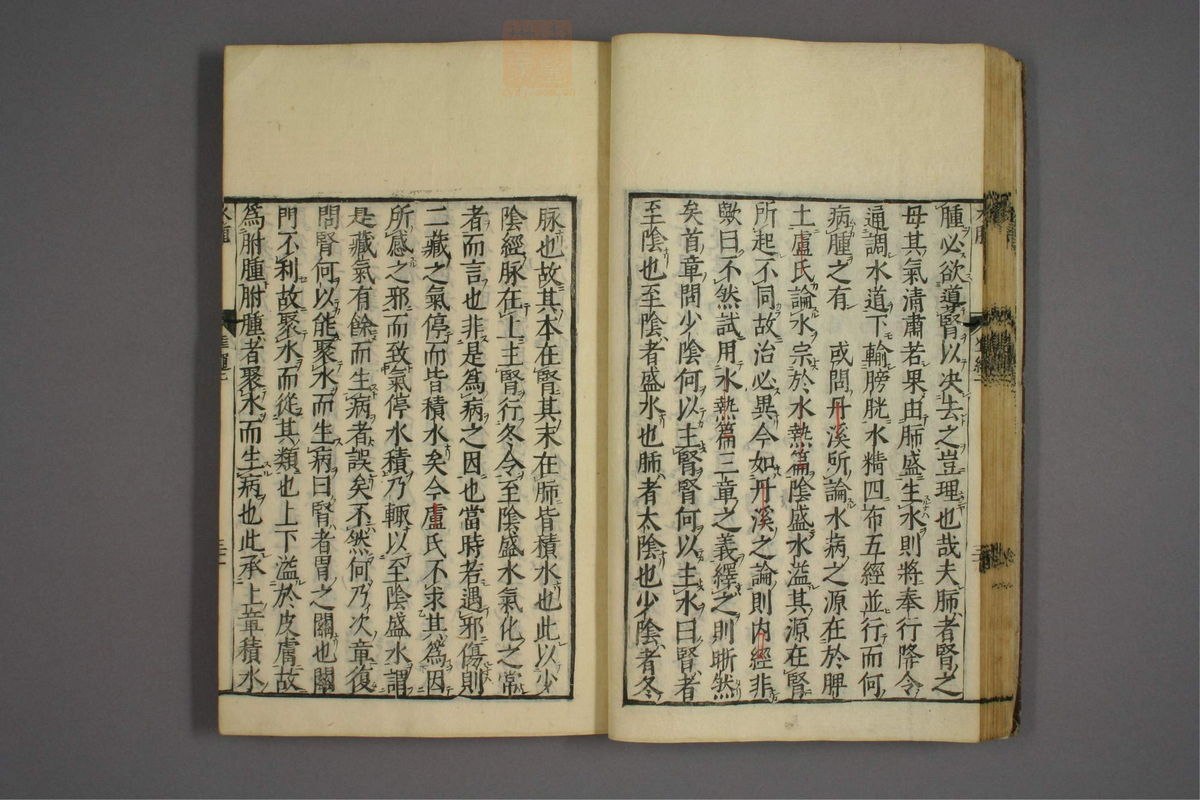 腫必欲導腎以決去之豈理也哉夫肺者腎之
母其氣清肅若果由肺盛生水則將奉行降令
通調水道下輸膀胱水精四布五經並行而何
病腫之有　或問丹溪所論水病之源在於脾
土盧氏論水宗於水熱篇陰盛水溢其源在腎
所起不同故治必異今如丹溪之論則內經非
歟曰不然試用水熱篇三章之義繹之則晰然
矣首章問少陰何以主腎腎何以主水曰腎者
至陰也至陰者盛水也肺者太陰也少陰者冬
脉也故其本在腎其末在肺皆積水也此以少
陰經脉在上主腎行冬令至陰盛水氣化之常
者而言也非是為病之因也當時若遇邪傷則
二藏之氣停而皆積水矣今盧氏不求其為因
所感之邪而致氣停水積乃輒以至陰盛水謂
是藏氣有餘而生病者誤矣不然何乃次章復
問腎何以能聚水而生病曰腎者胃之關也關
門不利故聚水而從其類也上下溢於皮膚故
為胕腫胕腫者聚水而生病也此承上章積水